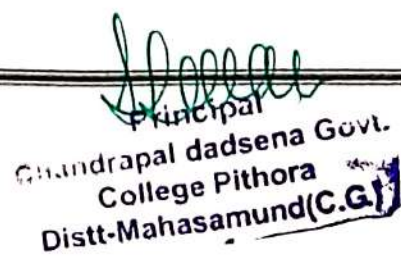 Principal
Chandrapal dadsena Govt.
College Pithora
Distt-Mahasamund(C.G)